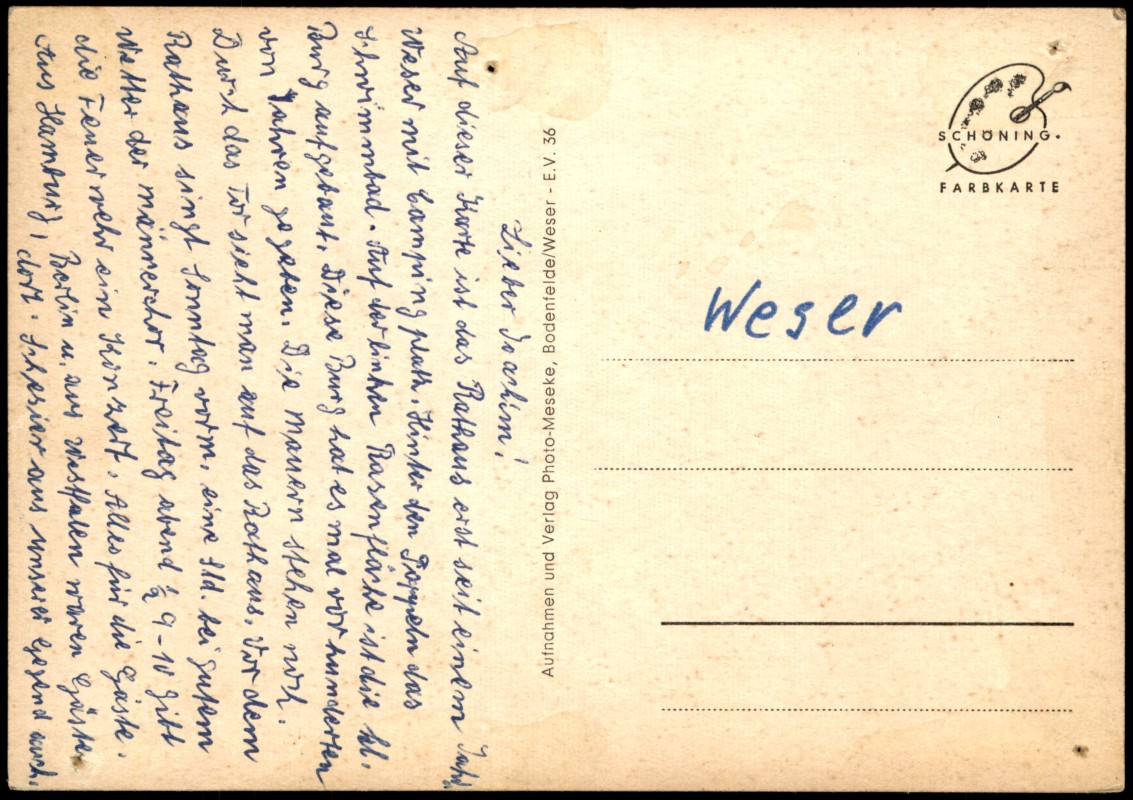 Lieber Joachim!
Auf dieser Karte ist das Rathaus erst seit einem Jahr.
Weser mit Campingplatz. Hinter den Pappeln das
Schwimmbad. Auf der linken Rasenfläche ist die kl.
Burg aufgebaut. Diese Burg hat es mal vor hunderten
von Jahren gegeben. Die Mauern stehen noch.
Durch das Tor sieht man auf das Rathaus. Vor dem
Rathaus singt Sonntag vorm. eine Std. bei gutem
Wetter der Männerchor. Freitag abend ½ 9-10 gibt
die Feuerwehr ein Konzert. Alles für die Gäste.
Aus Hamburg, Berlin u. aus Westfalen waren Gäste
dort. aus unserer Gegend auch.
Aufnahmen und Verlag Photo-Meseke, Bodenfelde/Weser - E.V. 36
SCHÖNING.
FARBKARTE
Weser